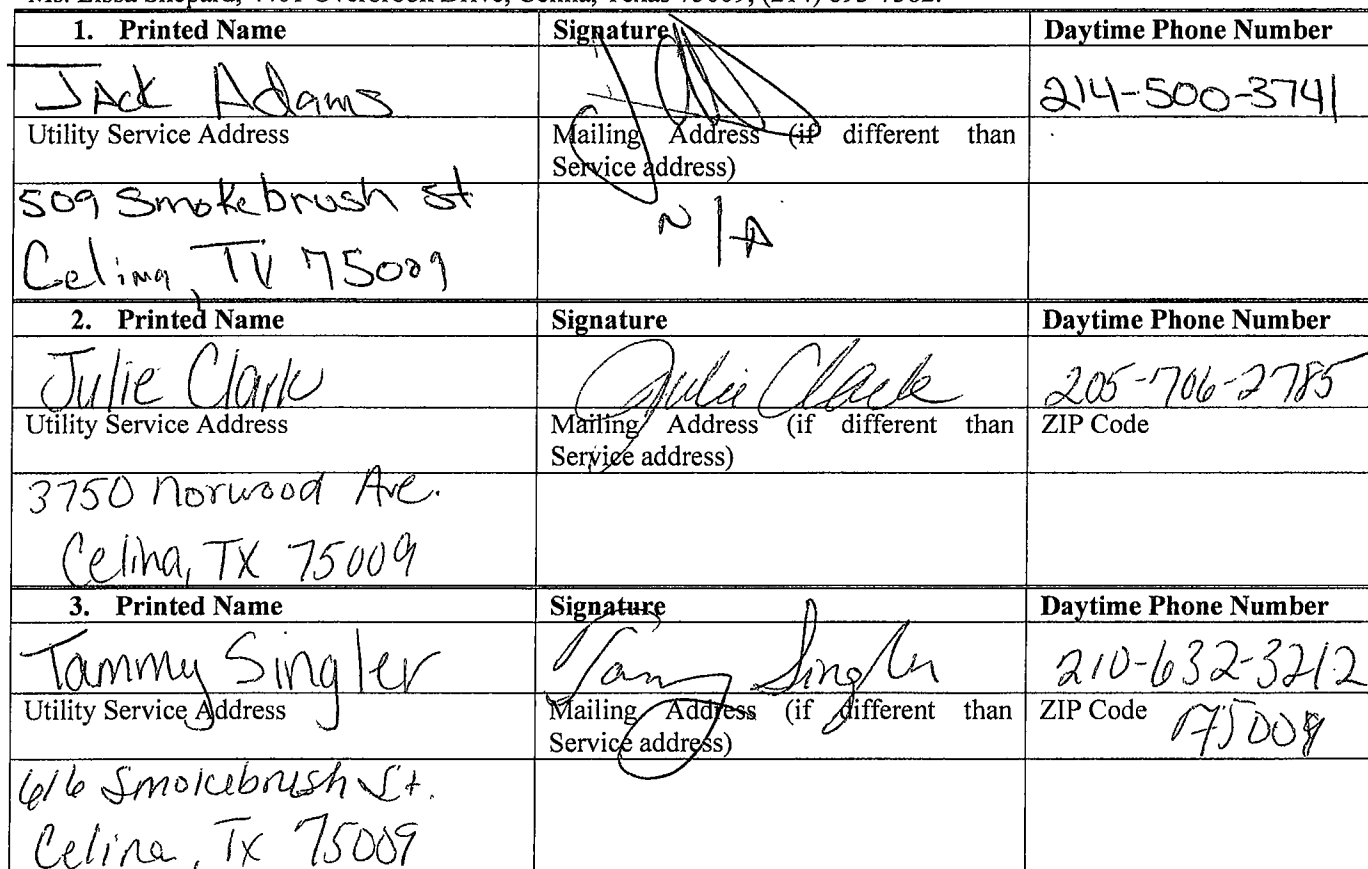 1. Printed Name Signature Daytime Phone Number
Jack Adams 214-500-3741
Utility Service Address Mailing Address (if different than
Service address)
509 Smokebrush St N/A
Celina, TX 75009
2. Printed Name Signature Daytime Phone Number
Julie Clark Julie Clark 205-706-2785
Utility Service Address Mailing Address (if different than ZIP Code
Service address)
3750 Norwood Ave.
Celina, TX 75009
3. Printed Name Signature Daytime Phone Number
Tammy Singler Tammy Singler 210-632-3212
Utility Service Address Mailing Address (if different than ZIP Code 75009
Service address)
616 Smokebrush St.
Celina, Tx 75009